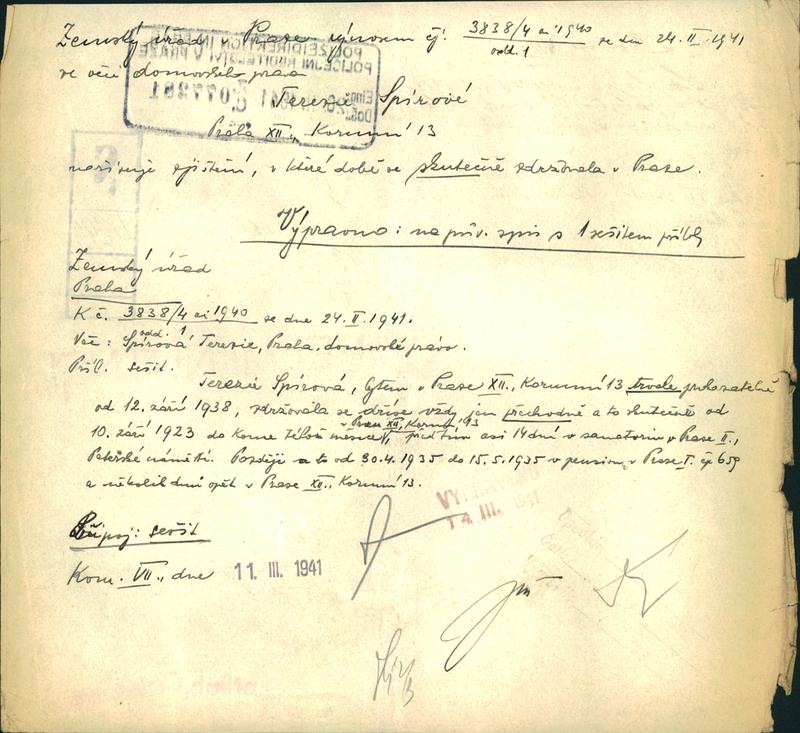 Zemský úřad v Praze výnosem čj. 3838/4 ai 1940 ze dne 24.II.1941
odd. 1
ve věci domovského práva
Terezie Spírové
Praha XII., Korunní 13
nařizuje zjištění, v které době se skutečně zdržovala v Praze.
Výpravna: na pův. spis s 1 sešitem příloh
Zemský úřad
Praha
K č. 3838/4 ai 1940 ze dne 24.II.1941.
odd. 1
Věc: Spírová Terezie, Praha, domovské právo.
Příl. sešit.
Terezie Spírová, bytem v Praze XII., Korunní 13 trvale prokazatelně
od 12. září 1938, zdržovala se dříve vždy jen přechodně a to skutečně od
v Praze XII, Korunní 13
10. září 1923 do konce téhož měsíce, předtím asi 14 dní v sanatoriu v Praze II.,
Petrské náměstí. Později a to od 30.4.1935 do 15.5.1935 v pensionu v Praze I. čp 659
a několik dní opět v Praze XII., Korunní 13.
Připoj: sešit
Kom. VII., dne 11. III. 1941
14. III. 1941
POLIZEIDIREKTION IN PRAG
POLICEJNÍ ŘEDITELSTVÍ V PRAZE